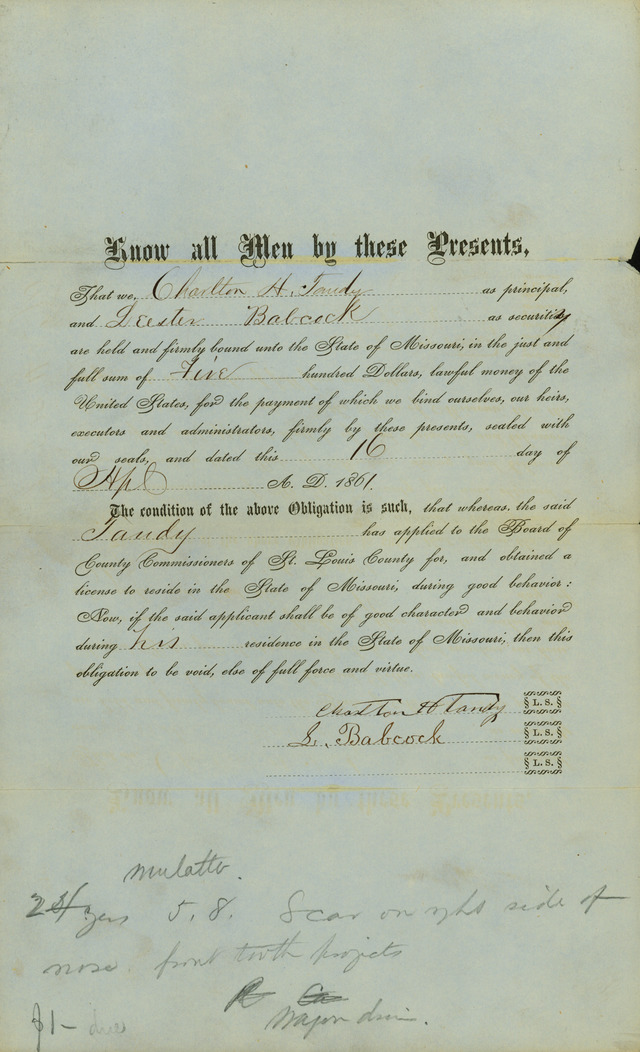 Know all Men by these Presents,
That we, Charlton H. Tandy as principal,
and Leester Babcock as security
are held and firmly bound unto the State of Missouri, in the just and
full sum of Five hundred Dollars, lawful money of the
United States, for the payment of which we bind ourselves, our heirs,
executors and administrators, firmly by these presents, sealed with
our seals, and dated this 16 day of
Apl A. D. 1861.
The condition of the above Obligation is such, that whereas, the said
Tandy has applied to the Board of
County Commissioners of St. Louis County for, and obtained a
license to reside in the State of Missouri, during good behavior:
Now, if the said applicant shall be of good character and behavior
during his residence in the State of Missouri, then this
obligation to be void, else of full force and virtue.
Charlton H Tandy § L. S. §
L. Babcock § L. S. §
§ L. S. §
mulatto.
24 yrs 5.8. Scar on right side of
nose front tooth projects
Wagon driver.
$1- due